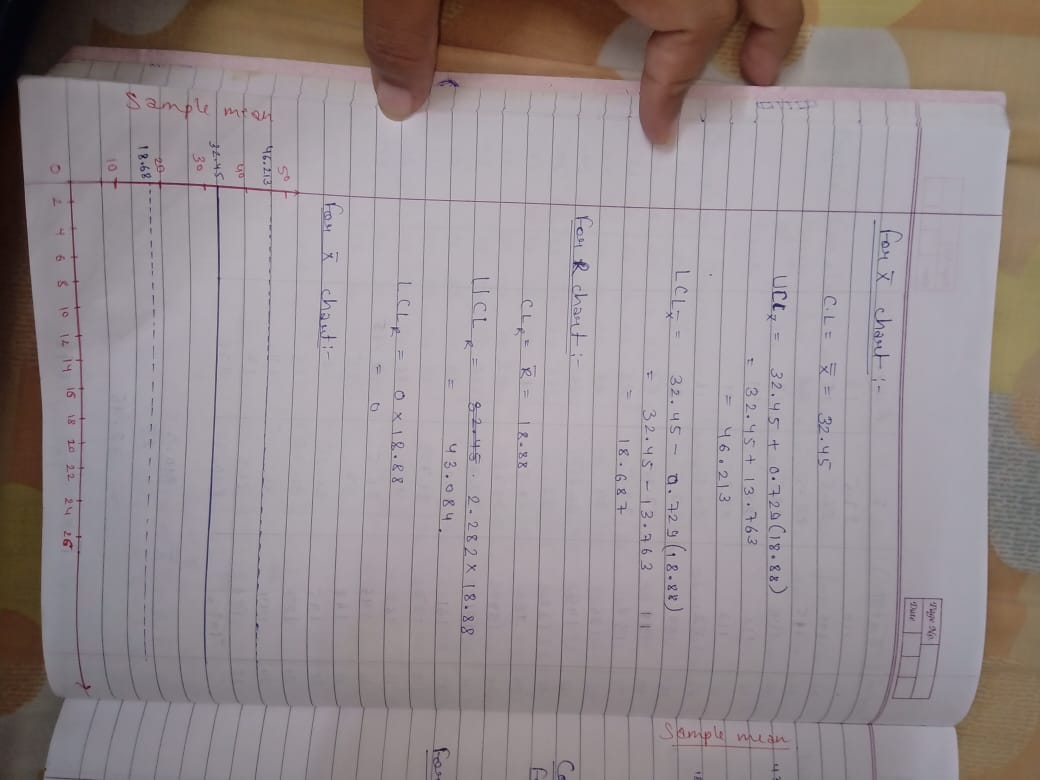 Page No.
Date
For X̄ chart :-
CL = X̿ = 32.45
UCLX̄ = 32.45 + 0.729(18.88)
= 32.45 + 13.763
= 46.213
LCLX̄ = 32.45 - 0.729(18.88)
= 32.45 - 13.763
= 18.687
For R chart :-
CLR = R̄ = 18.88
UCLR = 2.282 × 18.88
= 43.084.
LCLR = 0 × 18.88
= 0
For X̄ chart :-
50
46.213
40
32.45
30
20
18.68
10
0
Sample mean
2 4 6 8 10 12 14 16 18 20 22 24 26
Sample mean
For